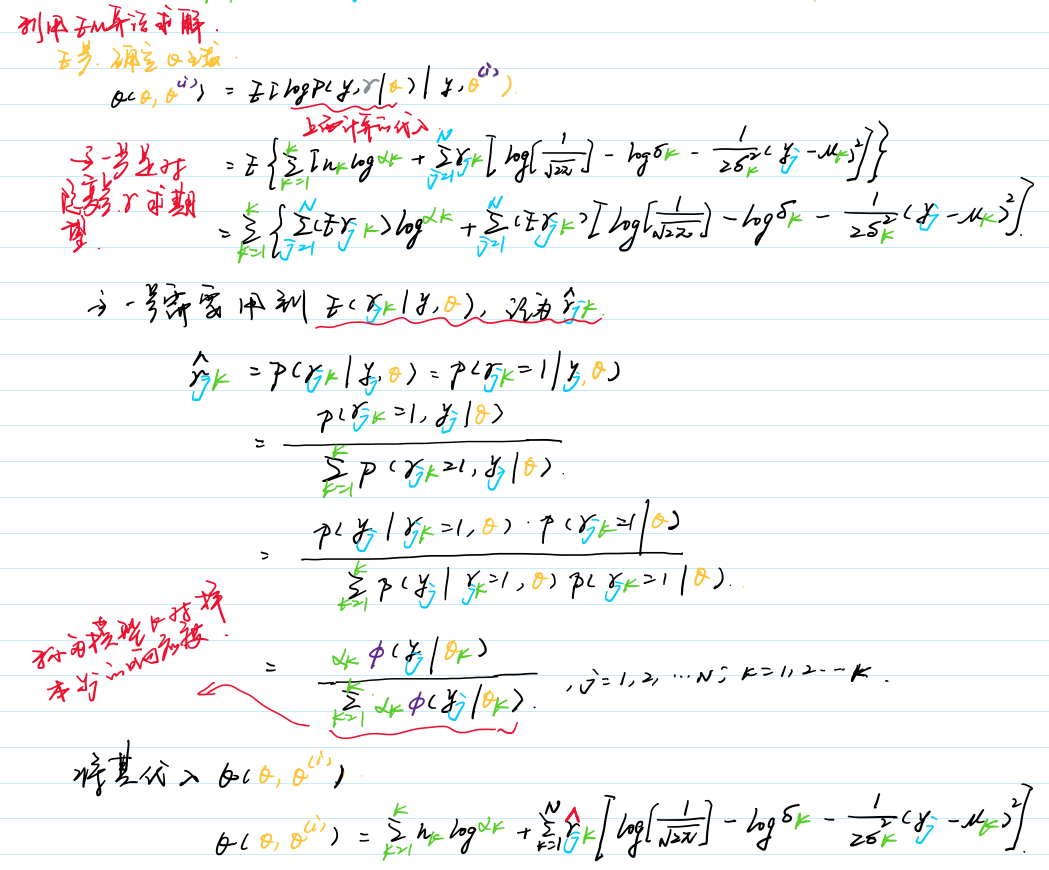 利用EM算法求解.
E步. 确定Q函数.
Q(θ, θ^(i)) = E[log P(y, γ|θ) | y, θ^(i)]
上面计算的代入
= E{∑_{k=1}^{K} [n_k log α_k + ∑_{j=1}^{N} γ_jk [log[1/√2π] - log δ_k - 1/2δ_k^2 (y_j - μ_k)^2]}
这一步是对
隐变量 γ 求期
望.
= ∑_{k=1}^{K} {∑_{j=1}^{N} (Eγ_jk) log α_k + ∑_{j=1}^{N} (Eγ_jk) [log[1/√2π] - log δ_k - 1/2δ_k^2 (y_j - μ_k)^2].
这一步需要用到 E(γ_jk | y, θ), 记为 γ̂_jk.
γ̂_jk = P(γ_jk | y_j, θ) = P(γ_jk = 1 | y_j, θ)
= P(γ_jk = 1, y_j | θ) / ∑_{k=1}^{K} P(γ_jk = 1, y_j | θ).
= P(y_j | γ_jk = 1, θ) · P(γ_jk = 1 | θ) / ∑_{k=1}^{K} P(y_j | γ_jk = 1, θ) P(γ_jk = 1 | θ).
= α_k φ(y_j | θ_k) / ∑_{k=1}^{K} α_k φ(y_j | θ_k). , j = 1, 2, … N; k = 1, 2 … K.
称为模型k对样
本 y_j 的响应度.
将其代入 Q(θ, θ^(i))
Q(θ, θ^(i)) = ∑_{k=1}^{K} n_k log α_k + ∑_{k=1}^{N} γ̂_jk [log[1/√2π] - log δ_k - 1/2δ_k^2 (y_j - μ_k)^2].